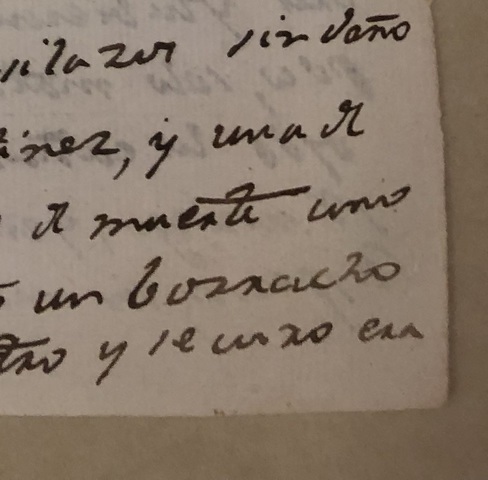 sin daño
inez, y una de
de muerte uno
un borracho
y se curo en